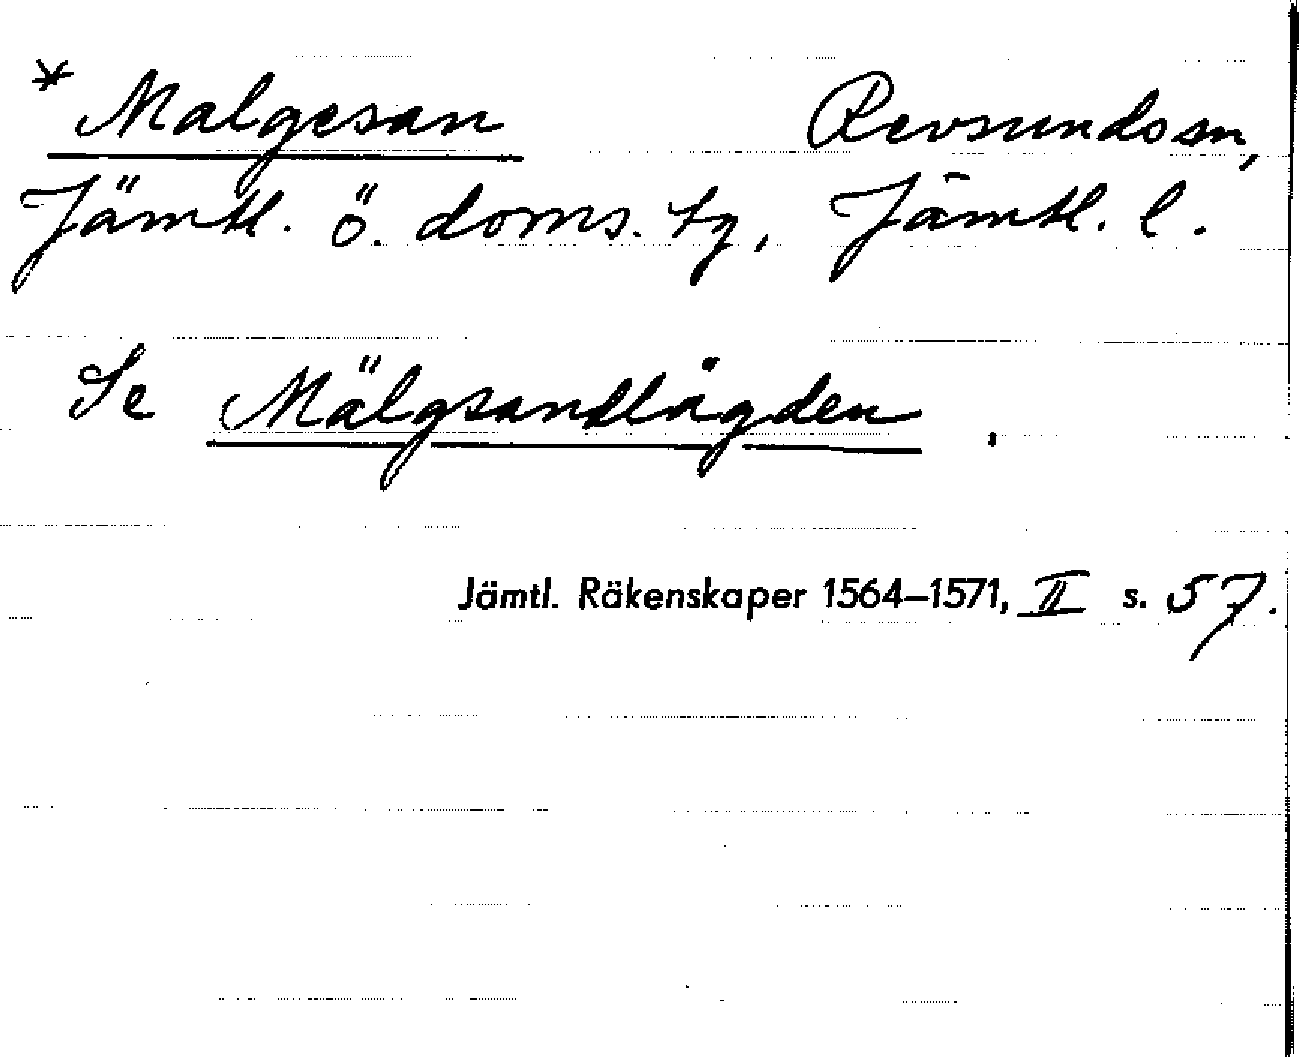 * Malgesan Revsunds sn,
Jämtl. ö. doms. tg, Jämtl. l.
Se Mälgsandlägden.
Jämtl. Räkenskaper 1564–1571, II s. 57.